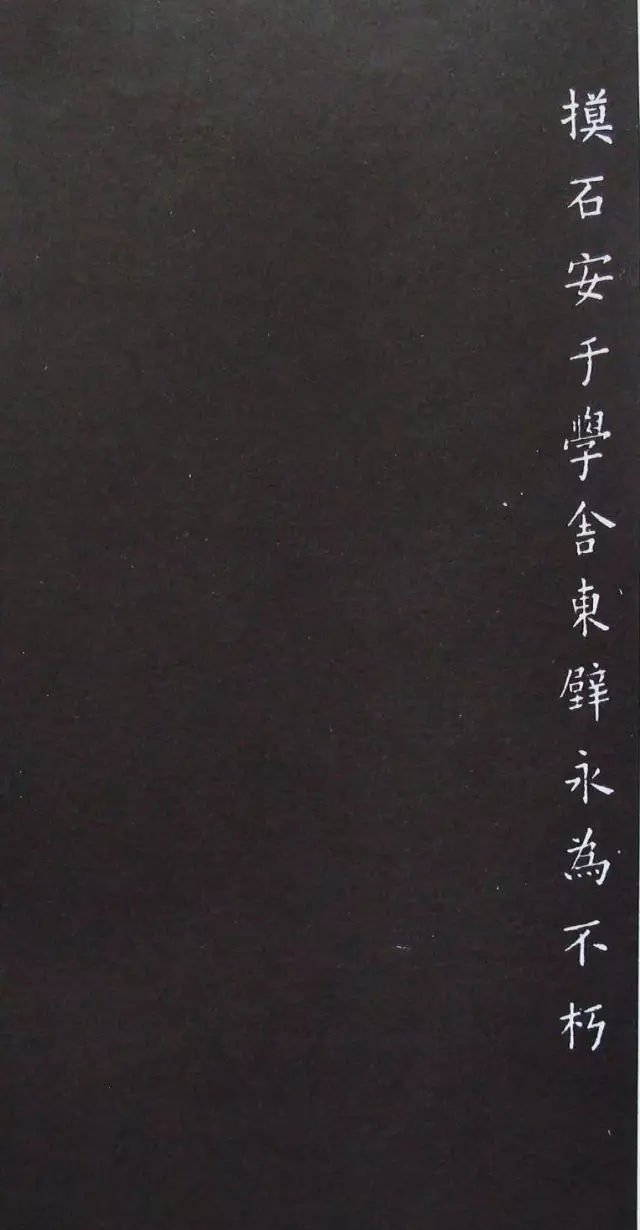 摸石安于學舍東壁永為不朽